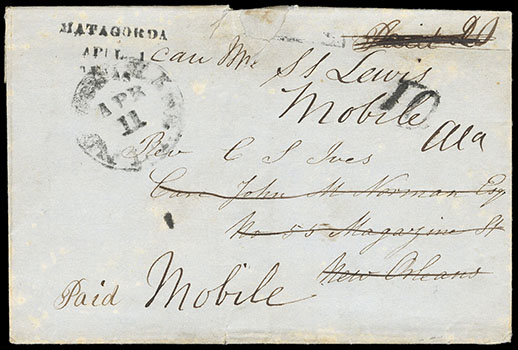 MATAGORDA
APL 1
Paid 20
APR
11
care Mr S S Lewis
10
Mobile
Ala
Rev C S Ives
Care John M Norman Esq
No 55 Magazine St
New Orleans
Paid Mobile